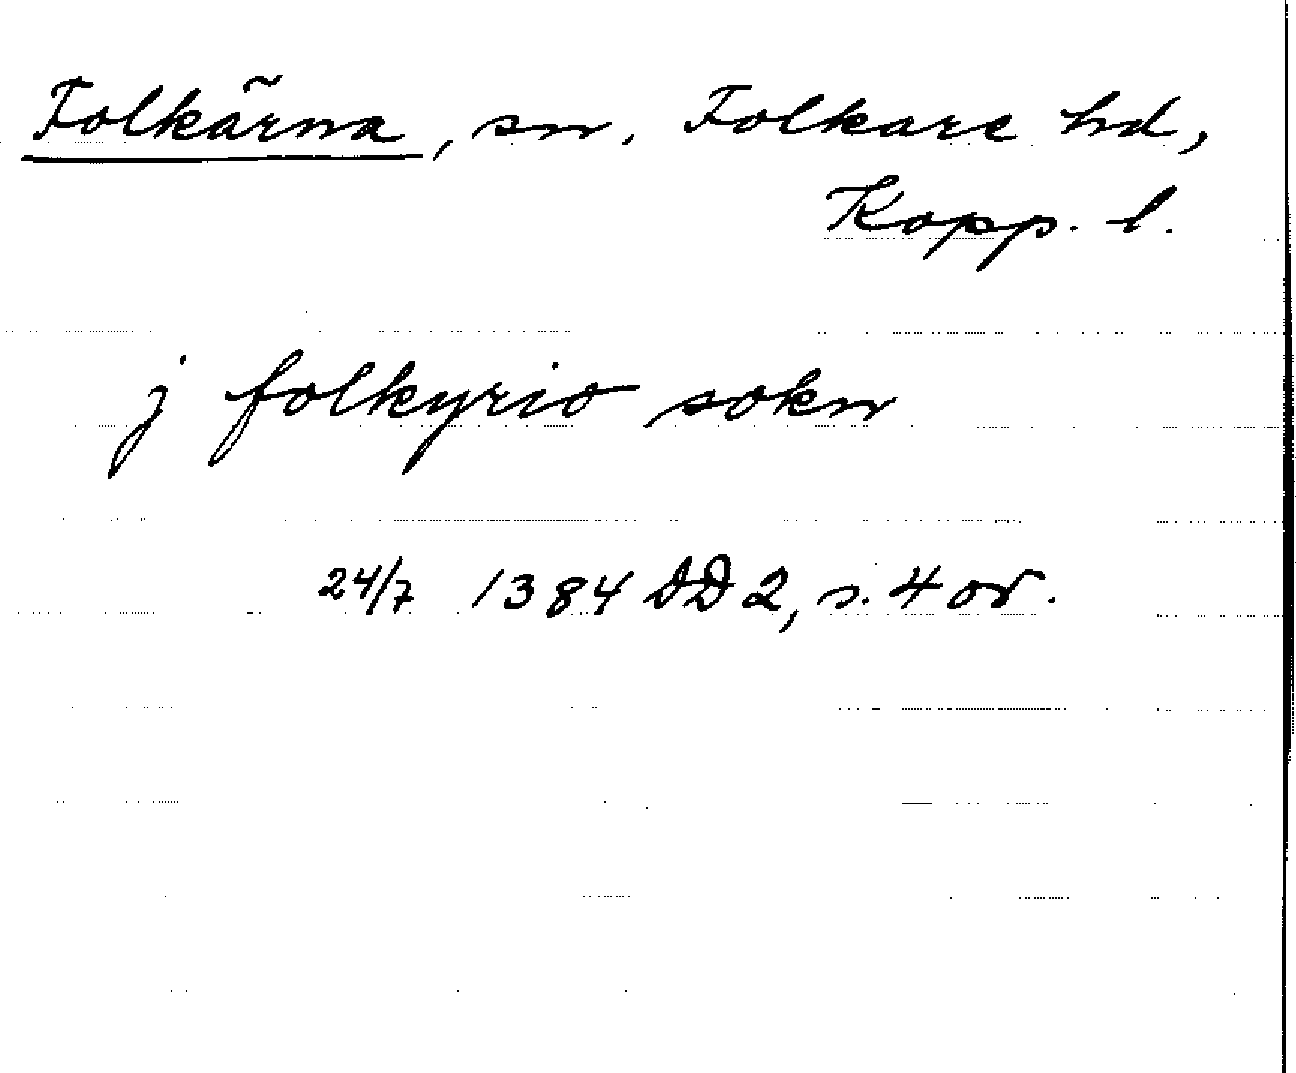 Folkärna, sn, Folkare hd,
Kopp. l.
j folkyrio sokn
24/7 1384 DD 2, s. 4 or.